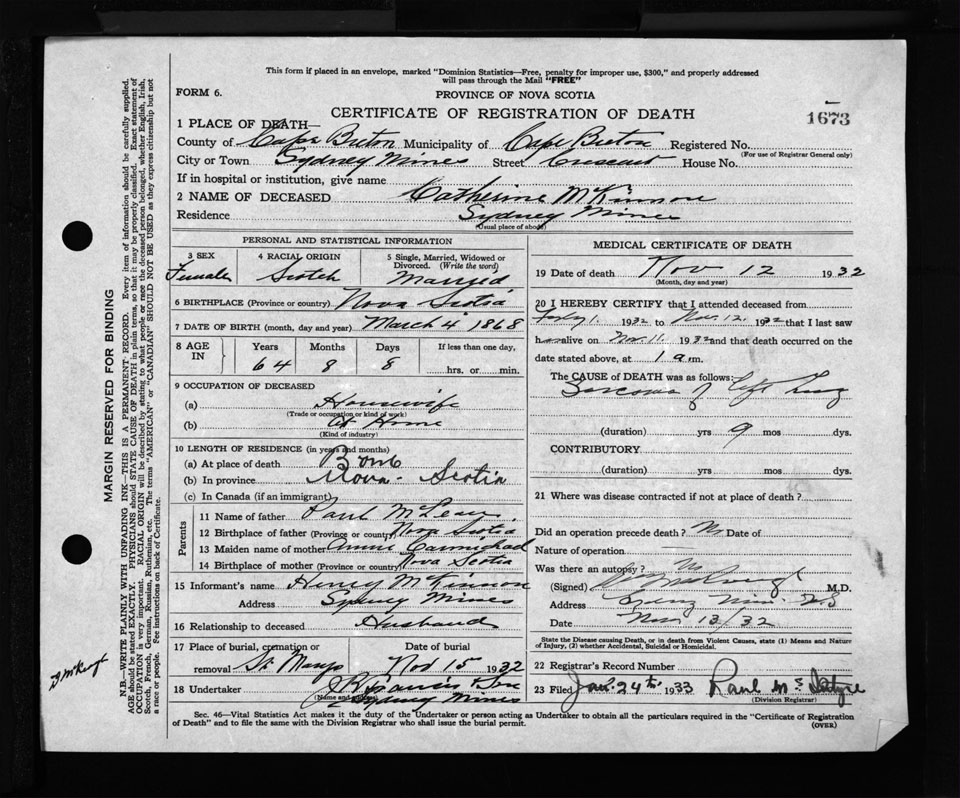 This form if placed in an envelope, marked "Dominion Statistics—Free, penalty for improper use, $300," and properly addressed
will pass through the Mail "FREE"
FORM 6.
PROVINCE OF NOVA SCOTIA
CERTIFICATE OF REGISTRATION OF DEATH
1673
1 PLACE OF DEATH—
County of Cape Breton Municipality of Cape Breton Registered No.
(For use of Registrar General only)
City or Town Sydney Mines Street Crescent House No.
If in hospital or institution, give name
2 NAME OF DECEASED Catherine McKinnon
Residence Sydney Mines
(Usual place of abode)
PERSONAL AND STATISTICAL INFORMATION
3 SEX Female
4 RACIAL ORIGIN Scotch
5 Single, Married, Widowed or Divorced. (Write the word) Married
6 BIRTHPLACE (Province or country) Nova Scotia
7 DATE OF BIRTH (month, day and year) March 4 1868
8 AGE IN
Years Months Days If less than one day,
64 8 8 hrs. or min.
9 OCCUPATION OF DECEASED
(a) Housewife
(Trade or occupation or kind of work)
(b) At Home
(Kind of industry)
10 LENGTH OF RESIDENCE (in years and months)
(a) At place of death Born
(b) In province Nova Scotia
(c) In Canada (if an immigrant)
Parents
11 Name of father Paul McLean
12 Birthplace of father (Province or country) Nova Scotia
13 Maiden name of mother Annie Carmichael
14 Birthplace of mother (Province or country) Nova Scotia
15 Informant's name Henry McKinnon
Address Sydney Mines
16 Relationship to deceased Husband
17 Place of burial, cremation or
removal St Marys
Date of burial
Nov 15 1932
18 Undertaker
(Name and address)
Sydney Mines
MEDICAL CERTIFICATE OF DEATH
19 Date of death Nov 12 1932
(Month, day and year)
20 I HEREBY CERTIFY that I attended deceased from
1 1932 to Nov. 12. 1932 that I last saw
alive on Nov. 11. 1932 and that death occurred on the
date stated above, at 1 a.m.
The CAUSE OF DEATH was as follows:
Sarcoma of left Lung
(duration) yrs 9 mos dys.
CONTRIBUTORY
(duration) yrs mos dys.
21 Where was disease contracted if not at place of death?
Did an operation precede death? No Date of
Nature of operation
Was there an autopsy? No
(Signed) M.D.
Address N.S
Date Nov 13/32
State the Disease causing Death, or in death from Violent Causes, state (1) Means and Nature
of Injury, (2) whether Accidental, Suicidal or Homicidal.
22 Registrar's Record Number
23 Filed Jan. 24th 1933 Paul McIntyre
(Division Registrar)
Sec. 46—Vital Statistics Act makes it the duty of the Undertaker or person acting as Undertaker to obtain all the particulars required in the "Certificate of Registration
of Death" and to file the same with the Division Registrar who shall issue the burial permit.
(OVER)
MARGIN RESERVED FOR BINDING
N.B.—WRITE PLAINLY WITH UNFADING INK—THIS IS A PERMANENT RECORD. Every item of information should be carefully supplied.
AGE should be stated EXACTLY. PHYSICIANS should STATE CAUSE OF DEATH in plain terms, so that it may be properly classified. Exact statement of
OCCUPATION is very important. RACIAL ORIGIN will be described by stating to what people or race the deceased person belonged, whether English, Irish,
Scotch, French, German, Russian, Ruthenian, etc. The terms "AMERICAN" or "CANADIAN" SHOULD NOT BE USED as they express citizenship but not
a race or people. Fee instructions on back of Certificate.